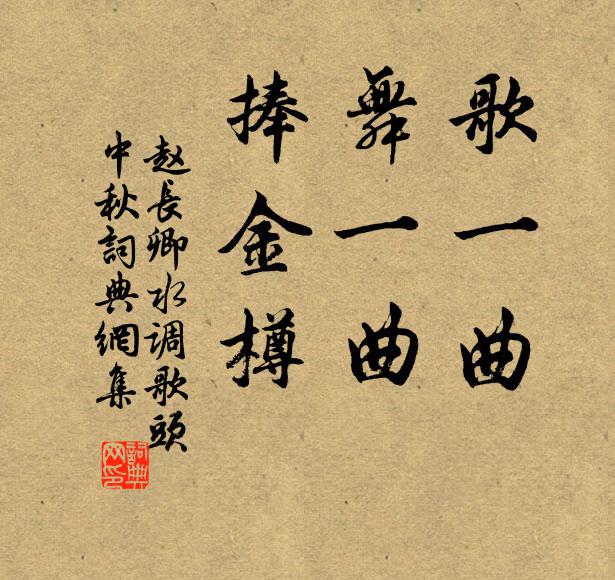 歌一曲
舞一曲
捧金樽
赵長卿水调歌頭
中秋詞典網集
詞典
网印